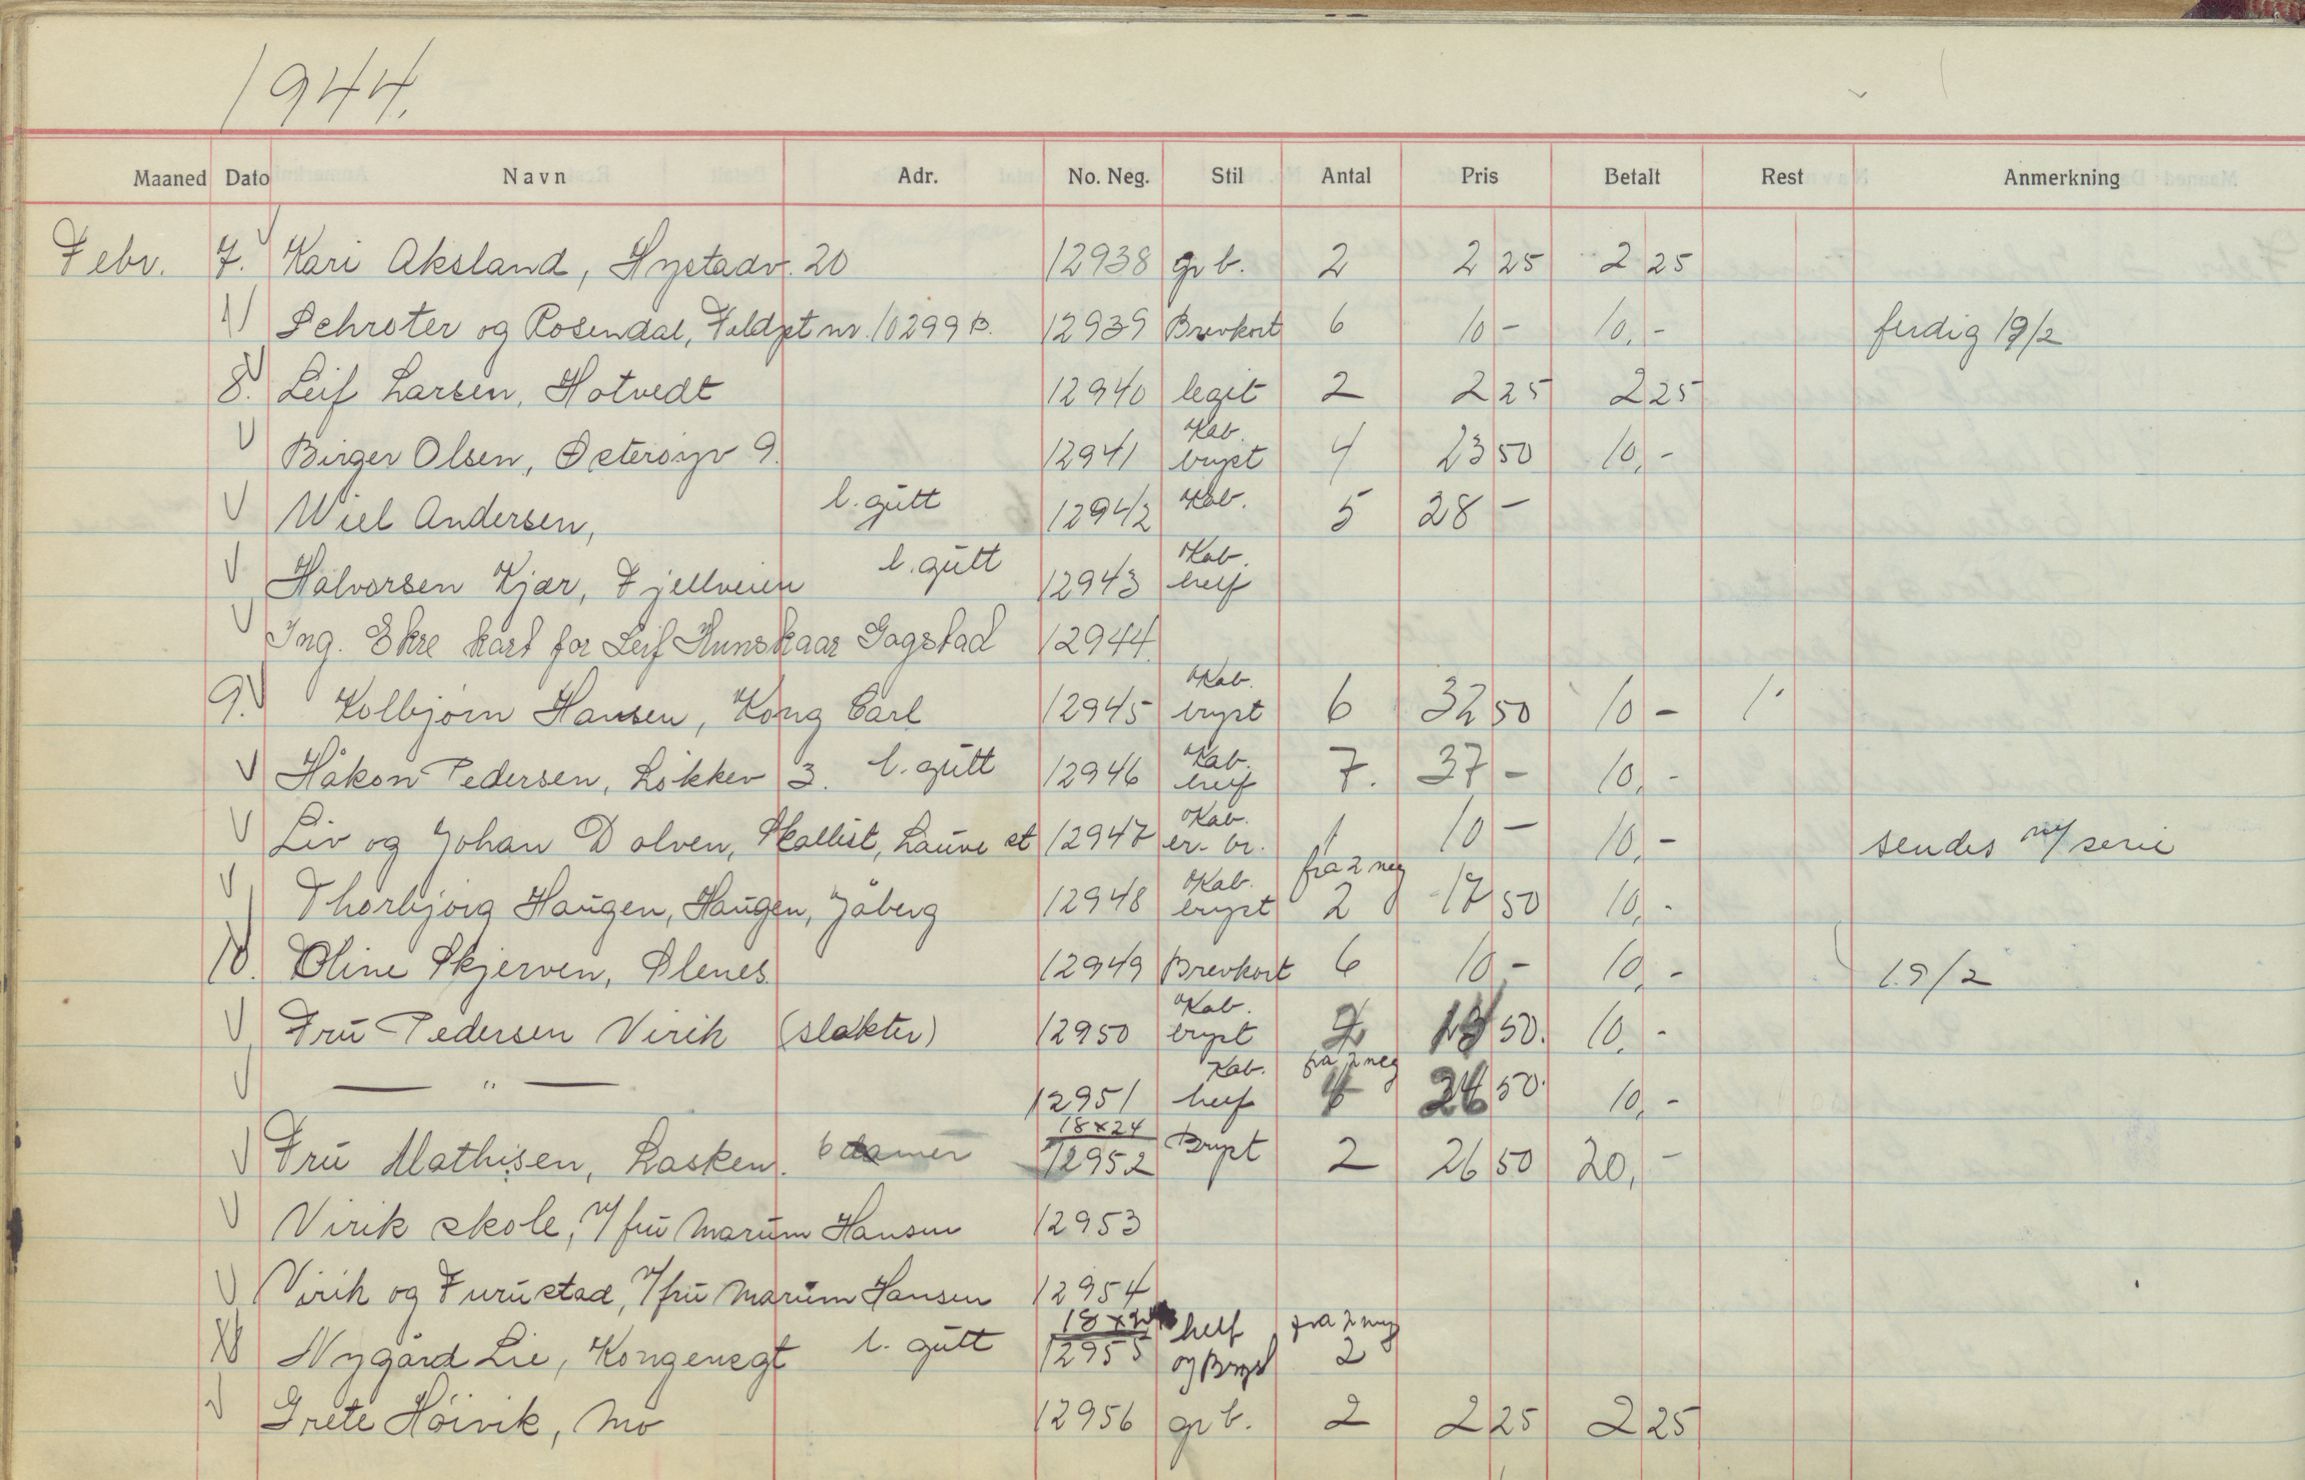 1944.
Maaned Dato Navn Adr. No. Neg. Stil Antal Pris Betalt Rest Anmerkning
Febr. 7. Kari Aksland, Hystadv. 20 12938 gr b. 2 2 25 2 25
Schroter og Rosendal, Feldpt nr. 10299 B. 12939 Brevkort 6 10 - 10,- ferdig 19/2
8. Leif Larsen, Hotvedt 12940 legit 2 2 25 2 25
Birger Olsen, Østerøyv 9. 12941 Kab. bryst 4 23 50 10,-
Wiel Andersen, l. gutt 12942 Kab. 5 28 -
Halvorsen Kjær, Fjellveien l. gutt 12943 Kab. helf
Ing. Ekre kart for Leif Hunskaar Gogstad 12944.
9. Kolbjörn Hansen, Kong Carl 12945 Kab. bryst 6 32 50 10 -
Håkon Pedersen, Løkkev 3. l. gutt 12946 Kab. helf 7. 37 - 10,-
Liv og Johan Dolven, Skallist, Lauve st 12947 Kab. er. br. 1 10 - 10,- sendes m/ serie
Thorbjörg Haugen, Haugen, Jåberg 12948 Kab. bryst fra 2 neg 2 17 50 10,-
10. Oline Skjerven, Slenes. 12949 Brevkort 6 10,- 10,- 19/2
Fru Pedersen Virik (slakter) 12950 Kab. bryst 50. 10,-
— " — 12951 Kab. helf fra 2 neg 50. 10,-
Fru Mathisen, Lasken. 6 damer 18x24 12952 Bryst 2 26 50 20,-
Virik skole, v/ fru Marum Hansen 12953
Virik og Furustad, v/ fru Marum Hansen 12954
11 Nygård Lie, Kongensgt l. gutt 18x24 12955 helf og Bryst fra 2 neg 2
Grete Höivik, Mo 12956 gr b. 2 2 25 2 25